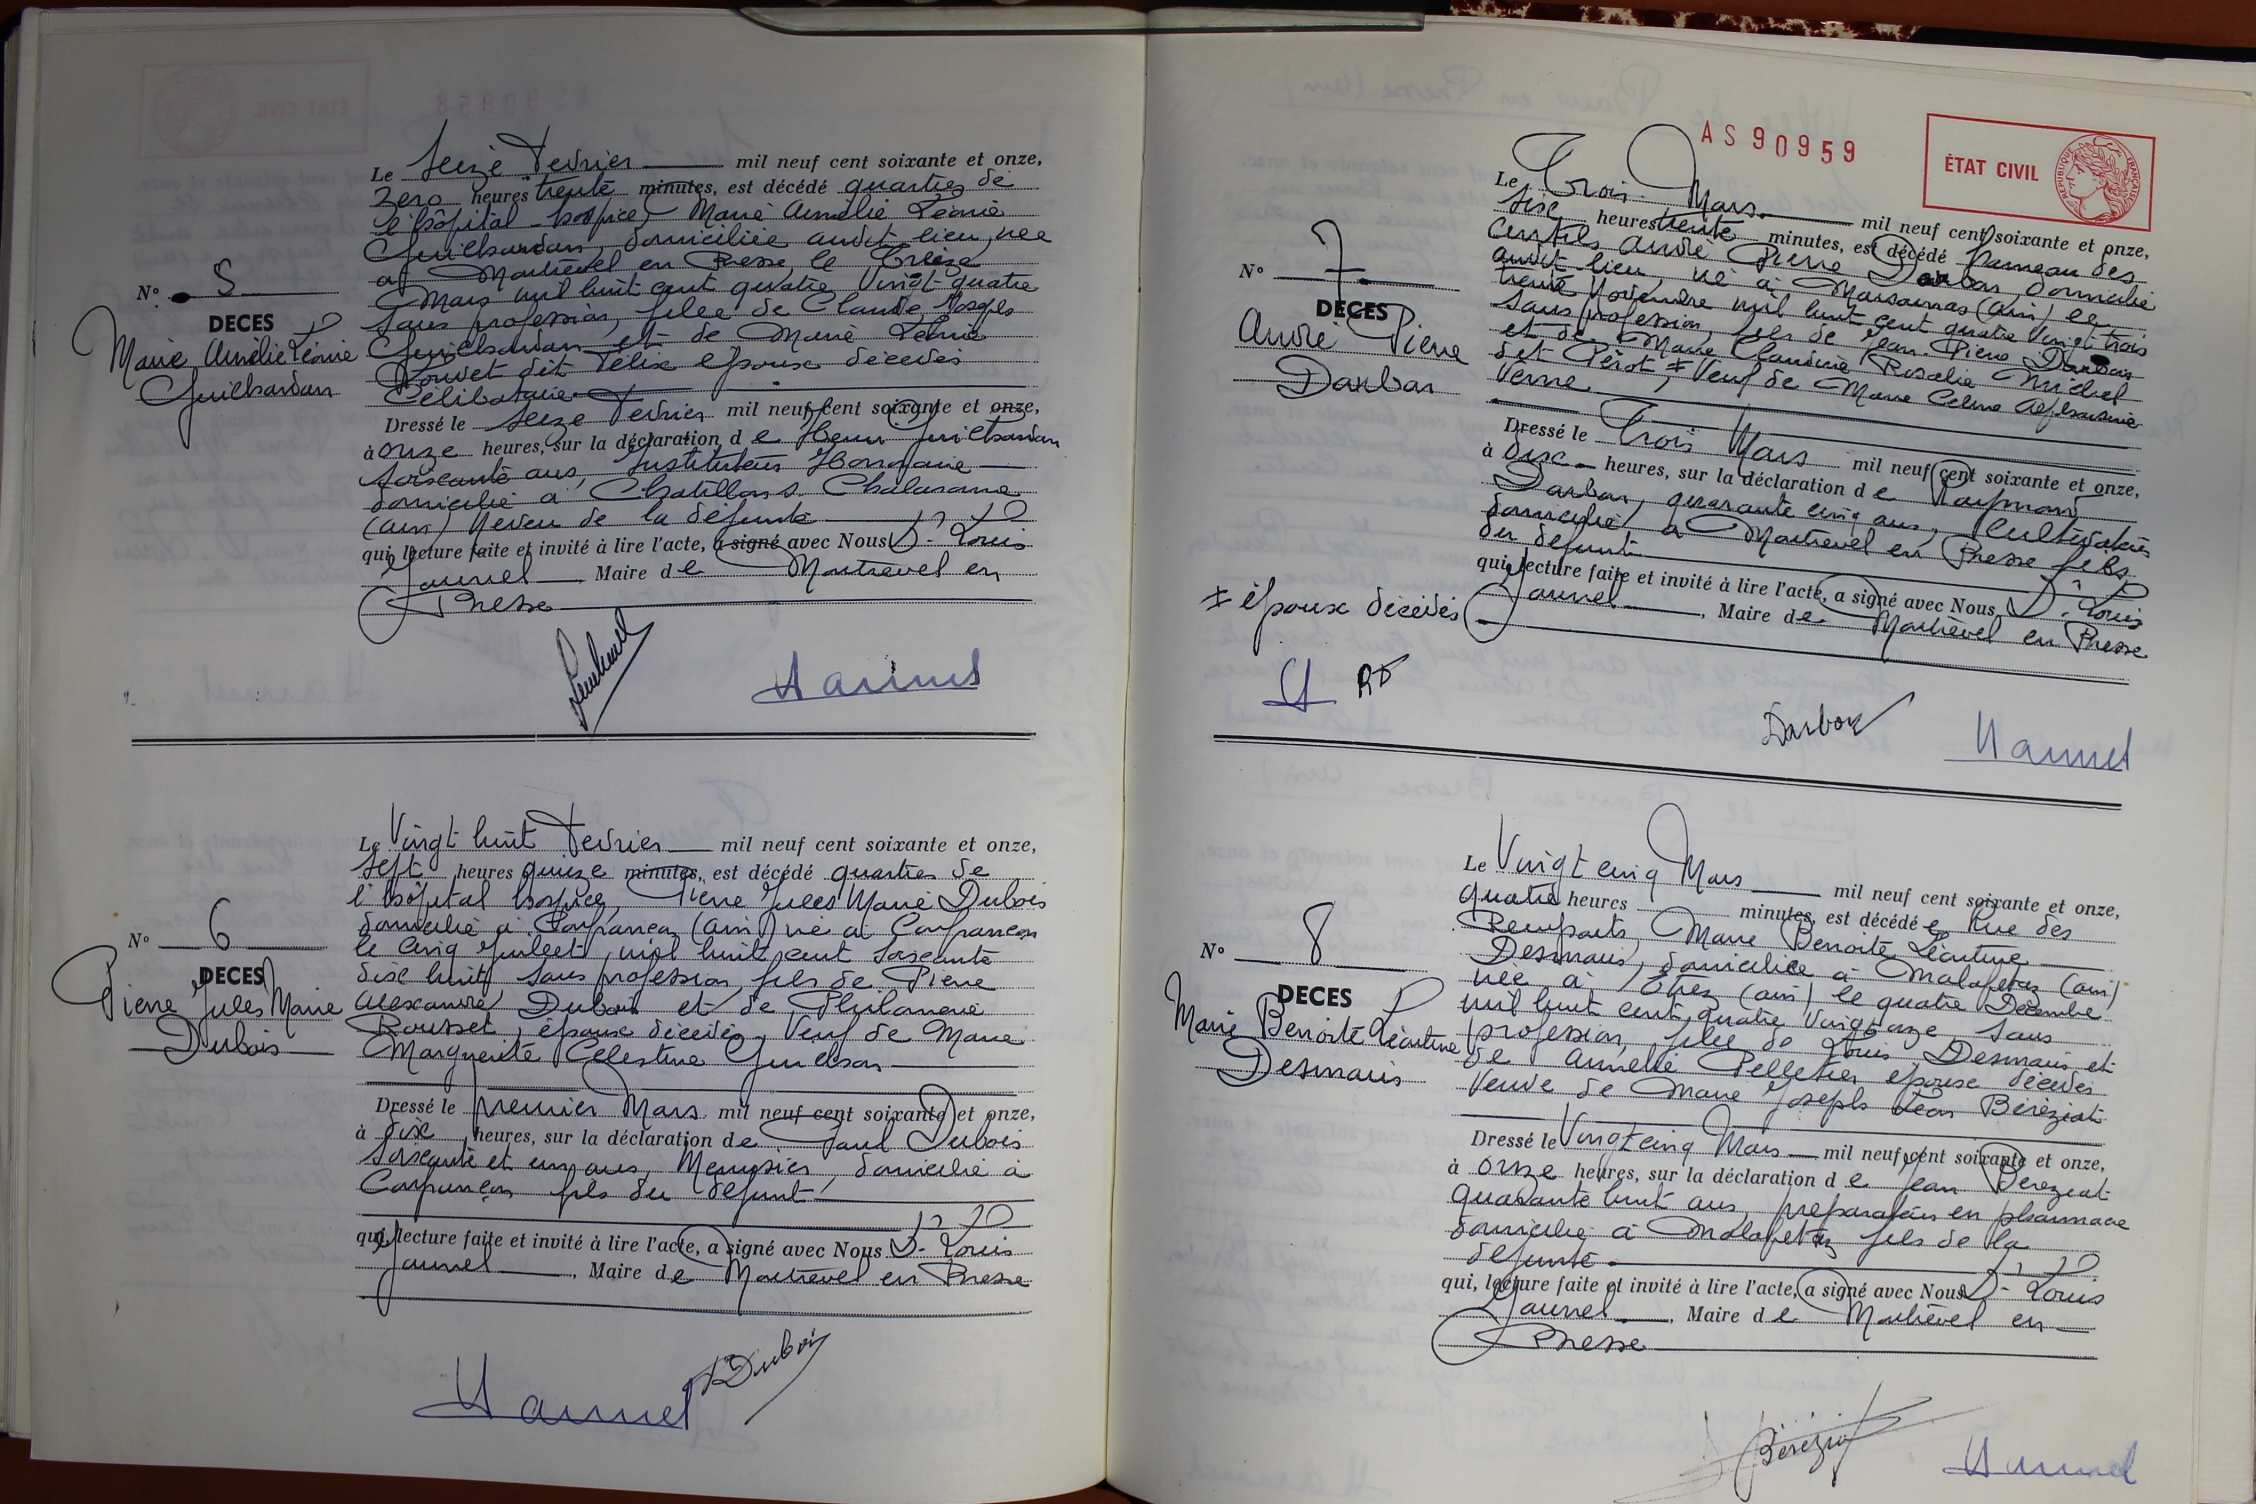 Le Seize Fevrier mil neuf cent soixante et onze,
Zero heures trente minutes, est décédé quartier de
l'hôpital hospice, Marie Amélie Léonie
Guichardan, domiciliée audit lieu, née
a Montrevel en Bresse le treize
Mars mil huit cent quatre Vingt quatre
Sans profession, fille de Claude Joseph
Guichardan et de Marie Léonie
Pouvet dit Félix époux décédés
Célibataire
Dressé le Seize Fevrier mil neuf cent soixante et onze,
à onze heures, sur la déclaration d e Henri Guichardan
soixante ans, Instituteur Honoraire
domicilié à Chatillon s. Chalaronne
(ain) Neveu de la défunte
qui, lecture faite et invité à lire l'acte, a signé avec Nous Louis
Jaunel Maire d e Montrevel en
Bresse
N° 5
DECES
Marie Amélie Léonie
Guichardan
Le Vingt huit Fevrier mil neuf cent soixante et onze,
Sept heures quinze minutes, est décédé quartier de
l'hôpital hospice, Pierre Jules Marie Dubois
domicilié à Confrançon (ain) né a Confrançon
le cinq Juillet mil huit cent soixante
dix huit, sans profession, fils de Pierre
Alexandre Dubois et de Philomène
Rousset, époux décédés, Veuf de Marie
Marguerite Célestine
N° 6
DECES
Pierre Jules Marie
Dubois
Dressé le premier Mars mil neuf cent soixante et onze,
à dix heures, sur la déclaration d e Dubois
Soixante et un ans, Menuisier, domicilié à
Confrançon fils du défunt
qui, lecture faite et invité à lire l'acte, a signé avec Nous Louis
Jaunel, Maire d e Montrevel en Bresse
Dubois
AS 90959
ÉTAT CIVIL
RÉPUBLIQUE FRANÇAISE
Le Trois Mars mil neuf cent soixante et onze,
Six heures trente minutes, est décédé hameau des
Curtils André Pierre Darbon domicilié
audit lieu né à Marsonnas (ain) le
trente Novembre mil huit cent quatre Vingt trois
sans profession, fils de Jean Pierre Darbon
et de Marie Claudine Rosalie Michel
dit Pérot ‡, Veuf de Marie Celine Alphonsine
Verne
N° 7
DECES
André Pierre
Darbon
Dressé le Trois Mars mil neuf cent soixante et onze,
à dix heures, sur la déclaration d e Raymond
Darbon, quarante cinq ans, Cultivateur
domicilié a Montrevel en Bresse fils
du défunt
qui, lecture faite et invité à lire l'acte, a signé avec Nous Louis
Jaunel, Maire d e Montrevel en Bresse
‡ époux décédés
RD
Darbon
Jaunel
Le Vingt cinq Mars mil neuf cent soixante et onze,
quatre heures minutes, est décédé e Rue des
Remparts, Marie Benoite Léontine
Desmaris, domiciliée à Malafretaz (ain)
née à Etrez (ain) le quatre Décembre
mil huit cent quatre Vingt onze, sans
profession, fille de Louis Desmaris et
de Amélie Pelletier époux décédés
Veuve de Marie Joseph Léon Bérèziat
N° 8
DECES
Marie Benoite Léontine
Desmaris
Dressé le Vingt cinq Mars mil neuf cent soixante et onze,
à onze heures, sur la déclaration d e Jean Bereziat
quarante huit ans, préparateur en pharmacie
domicilié à Malafretaz fils de la
défunte
qui, lecture faite et invité à lire l'acte, a signé avec Nous Louis
Jaunel, Maire d e Montrevel en
Bresse
Bérèziat